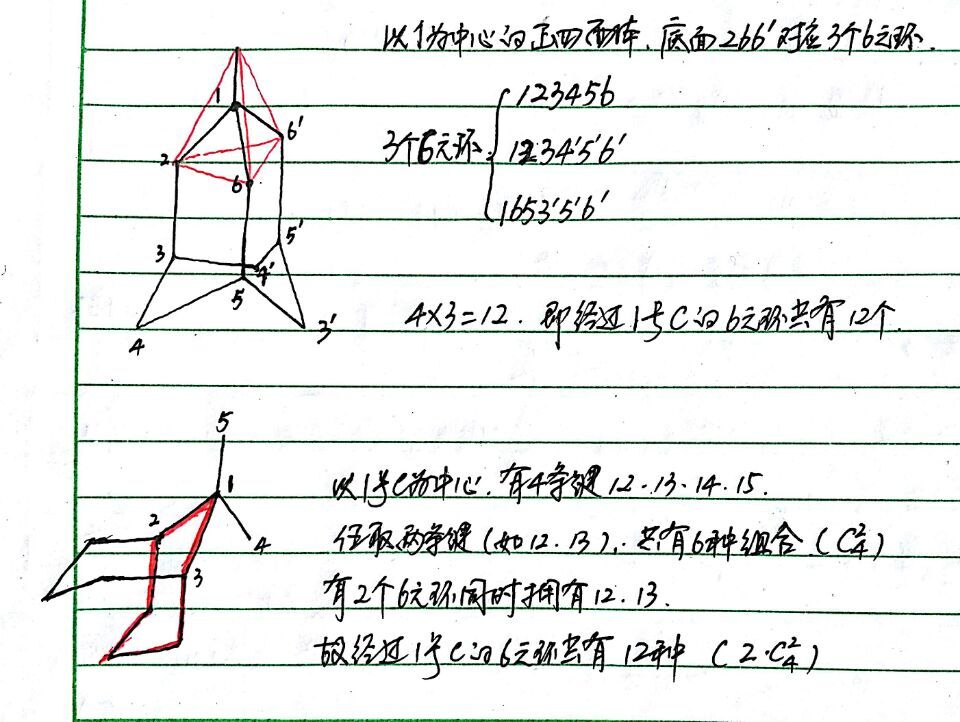 以1为中心的正四面体、底面266'对应3个6元环.
1
6'
2
6
3
5'
4'
5
4
3'
3个6元环
123456
1234'5'6'
1653'5'6'
4×3=12. 即经过1号C的6元环共有12个.
5
1
2
4
3
以1号C为中心.有4条键12.13.14.15.
任取两条键(如12.13).共有6种组合.(C₄²)
有2个6元环同时拥有12.13.
故经过1号C的6元环共有12种 (2·C₄²)